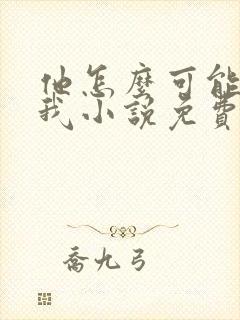 他怎麼可能
我小說免費
喬九弓